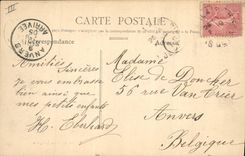 III
CARTE POSTALE
Correspondance
ANVERS
ARRIVÉE
05
Amitiés Sincères
je vous embrasse
bien ainsi que
mes petits enfants
H. Eberhard
Madame
Elise de Doncker
56 rue Van Artier
Anvers
Belgique